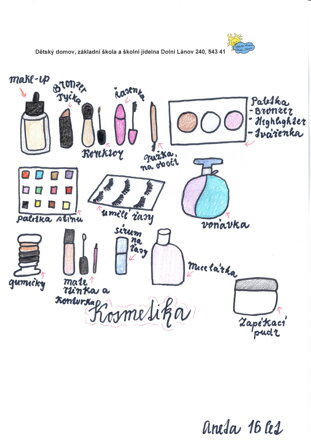 Dětský domov, základní škola a školní jídelna Dolní Lánov 240, 543 41
make-up
Bronzer
Tyčka
Řasenka
Korektor
Tužka
na obočí
Paletka
- Bronzer
- Highlighter
- Tvářenka
paletka stínů
umělí řasy
voňavka
gumičky
matte
rtěnka a
konturka
sérum
na
řasy
Micelárka
Zapékací
pudr
Kosmetika
Aneta 16 let